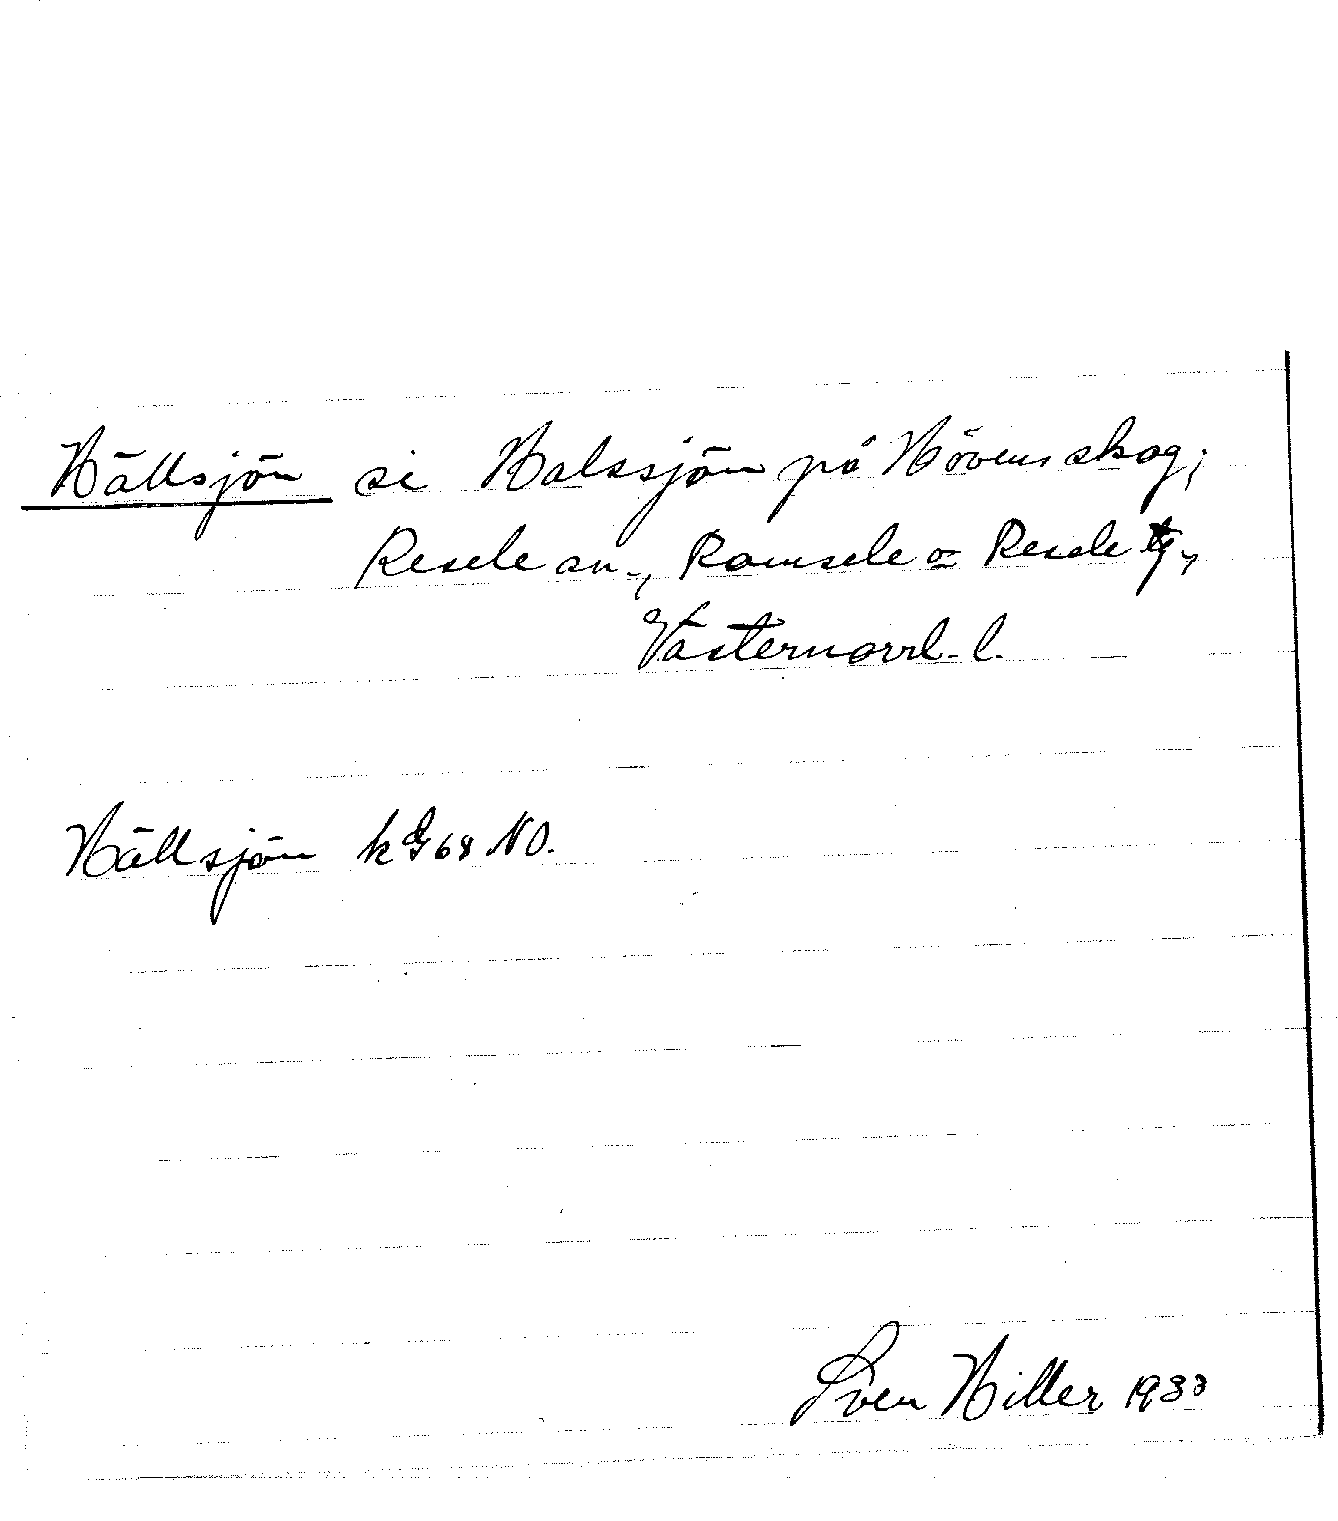 Hällsjön se Halssjön på Hövens skog;
Resele sn., Ramsele o Resele tg,
Västernorrl. l.
Hällsjön kG68 NO.
Sven Hiller 1933